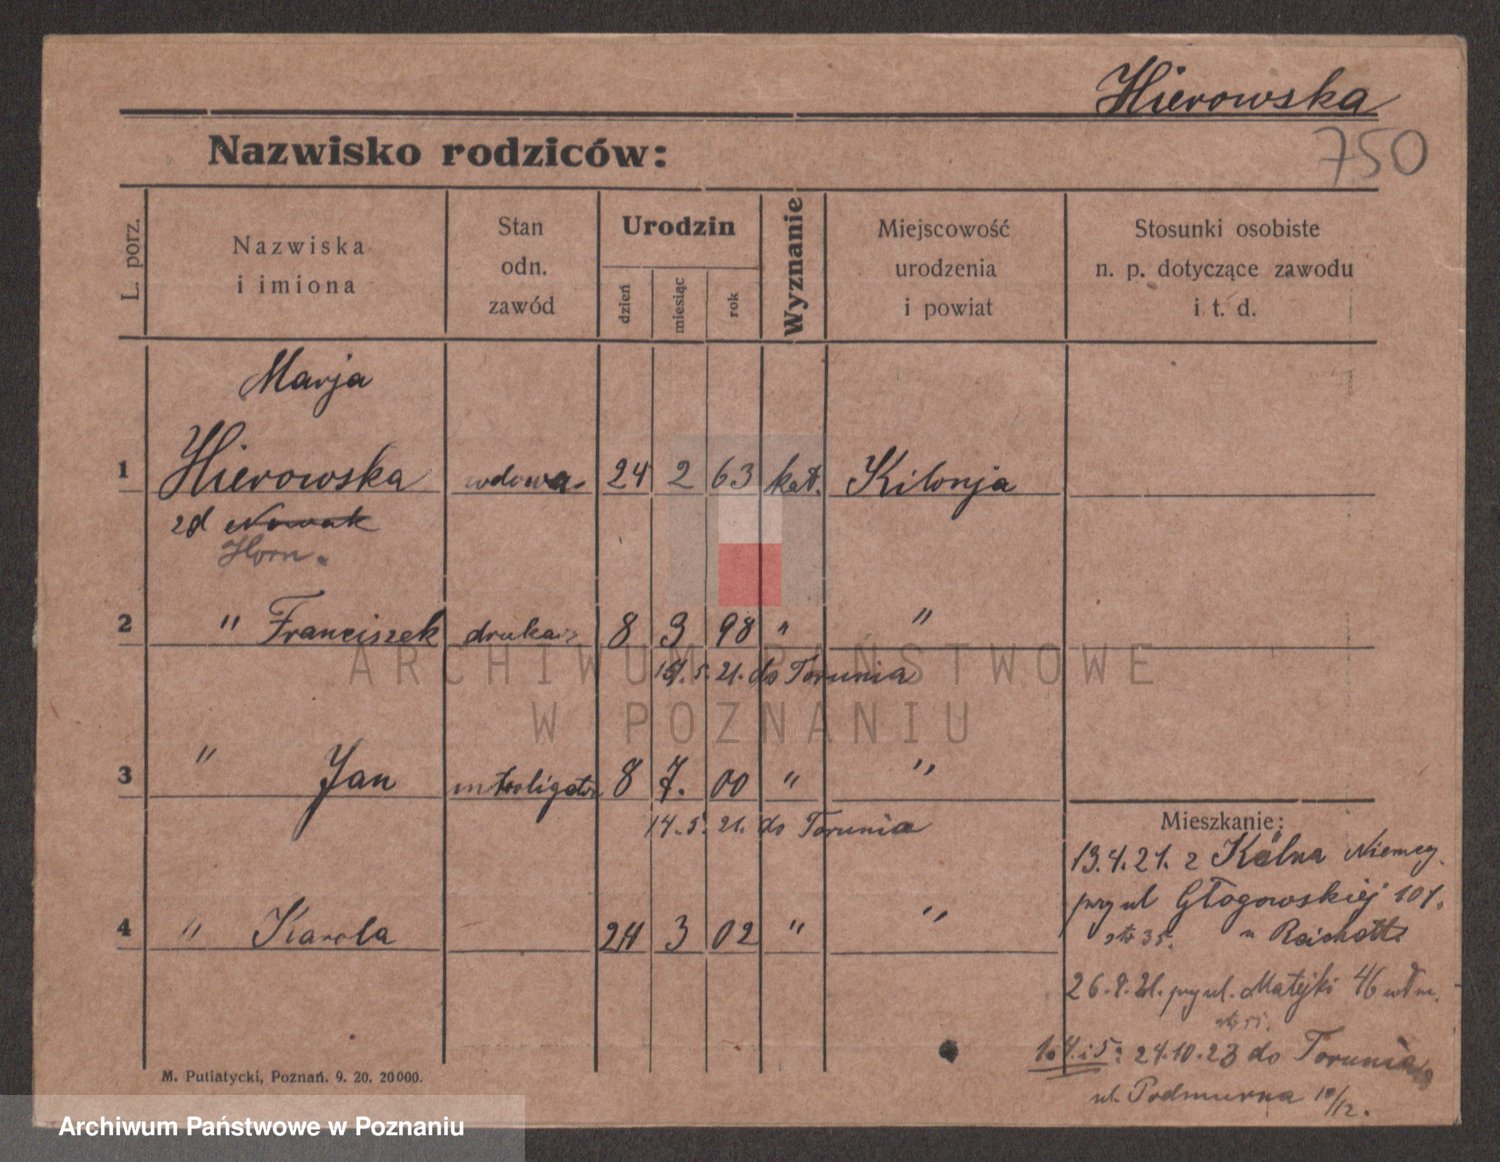 Hierowska
750
Nazwisko rodziców:
L. porz.
Nazwiska
i imiona
Stan
odn.
zawód
Urodzin
dzień
miesiąc
rok
Wyznanie
Miejscowość
urodzenia
i powiat
Stosunki osobiste
n. p. dotyczące zawodu
i t. d.
Marja
1 Hierowska wdowa 24 2 63 kat. Kilonja
zd Nowak
Horn.
2 " Franciszek drukarz 8 3 98 " "
14.5.21. do Torunia
3 " Jan introligator 8 7. 00 " "
14.5.21. do Torunia
4 " Karola 24 3 02 " "
Mieszkanie:
13.4.21. z Kölna Niemcy.
przy ul Głogowskiej 101.
35.
26.9.21. przy ul. Matejki 46
1. 4. i 5: 24.10.23 do Torunia
ul. Podmurna 10/12.
M. Putiatycki, Poznań. 9. 20. 20000.
ARCHIWUM PAŃSTWOWE
W POZNANIU
Archiwum Państwowe w Poznaniu